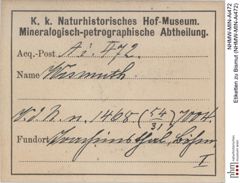 K. k. Naturhistorisches Hof-Museum.
Mineralogisch-petrographische Abtheilung.
Acq.-Post A. i. 472
Name Wismuth
1468 (54/31)
Fundort Joachimsthal, Böhmen
I
NHMW-MIN-Ai472
Etiketten zu Bismut (NHMW-MIN-Ai472)
nhm